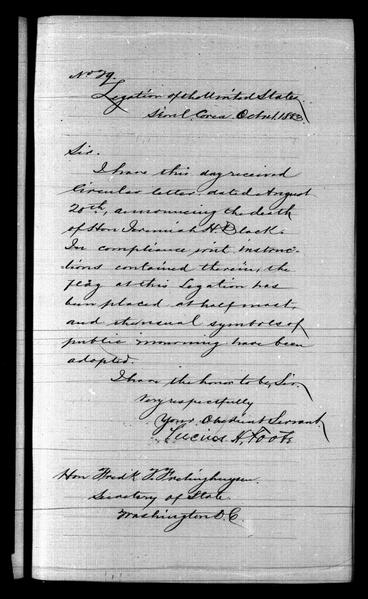 No 29.
Legation of the United States
Séoul, Corea. Oct 1883
Sir.
I have this day received
Circular letter dated August
20th, announcing the death
of Hon Jeremiah S. Black.
In compliance with instruc-
tions contained therein, the
flag at this Legation has
been placed at half mast,
and the usual symbols of
public mourning have been
adopted.
I have the honor to be, Sir,
Very respectfully
Your Obedient Servant
Lucius H. Foote
Hon Fredk T. Frelinghuysen
Secretary of State
Washington D.C.